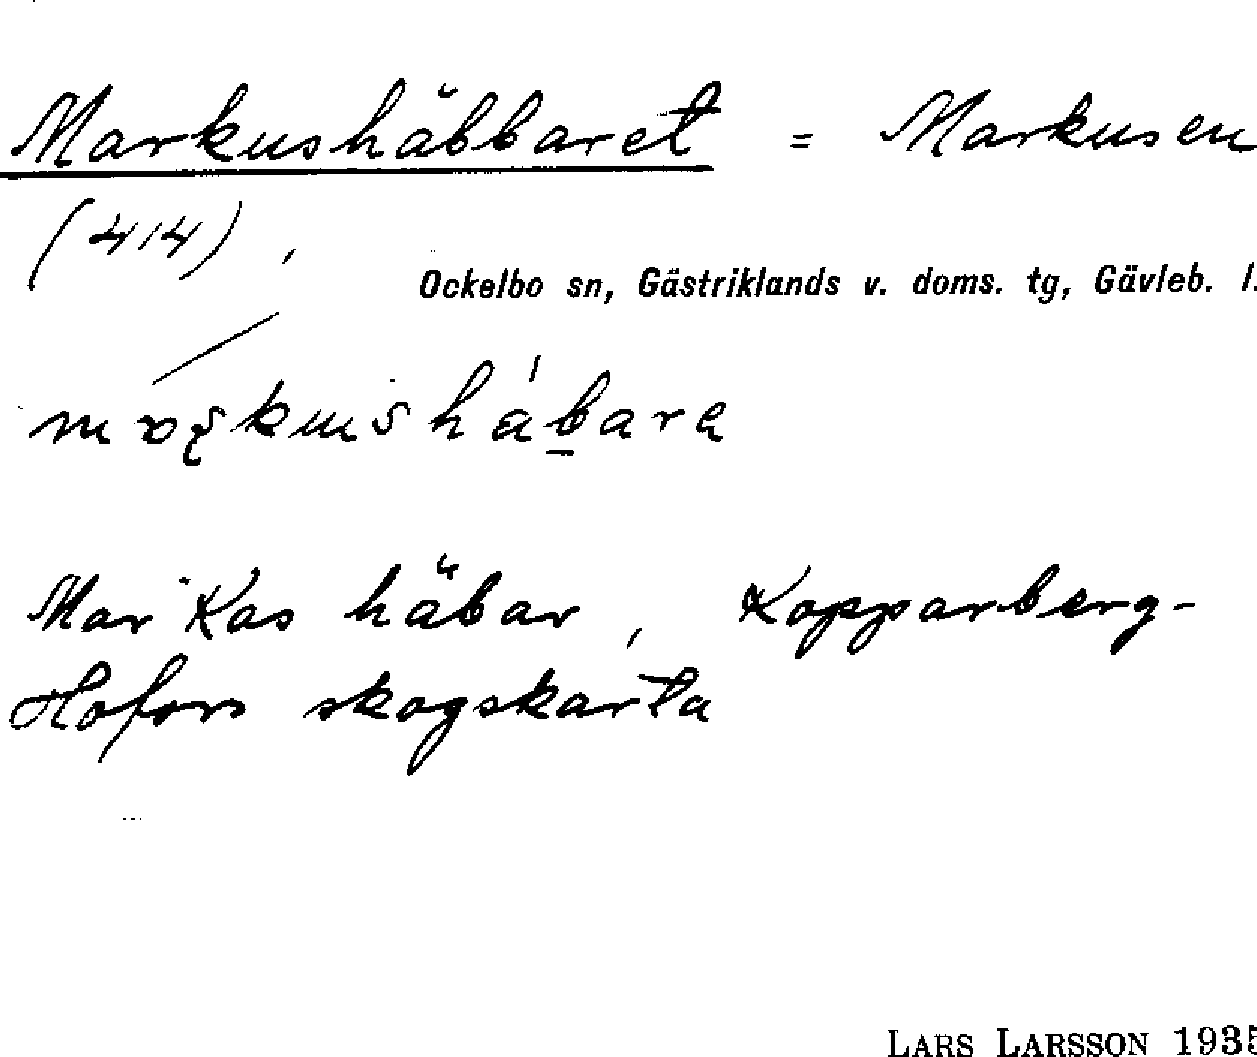 Markushäbbaret = Markusen
(414),
Ockelbo sn, Gästriklands v. doms. tg, Gävleb. l.
Mar Kas häbar, Kopparberg-
Hofors skogskarta
LARS LARSSON 1935